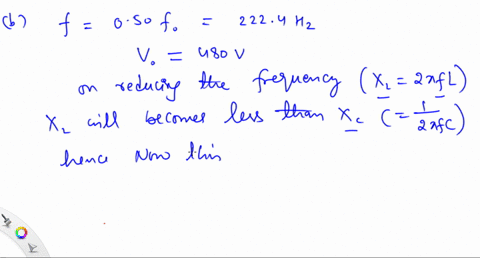 (b) f = 0.50 f₀ = 222.4 Hz
V₀ = 480 V
on reducing the frequency (XL = 2πfL)
XL will becomes less than Xc (= 1/2πfC)
hence Now this